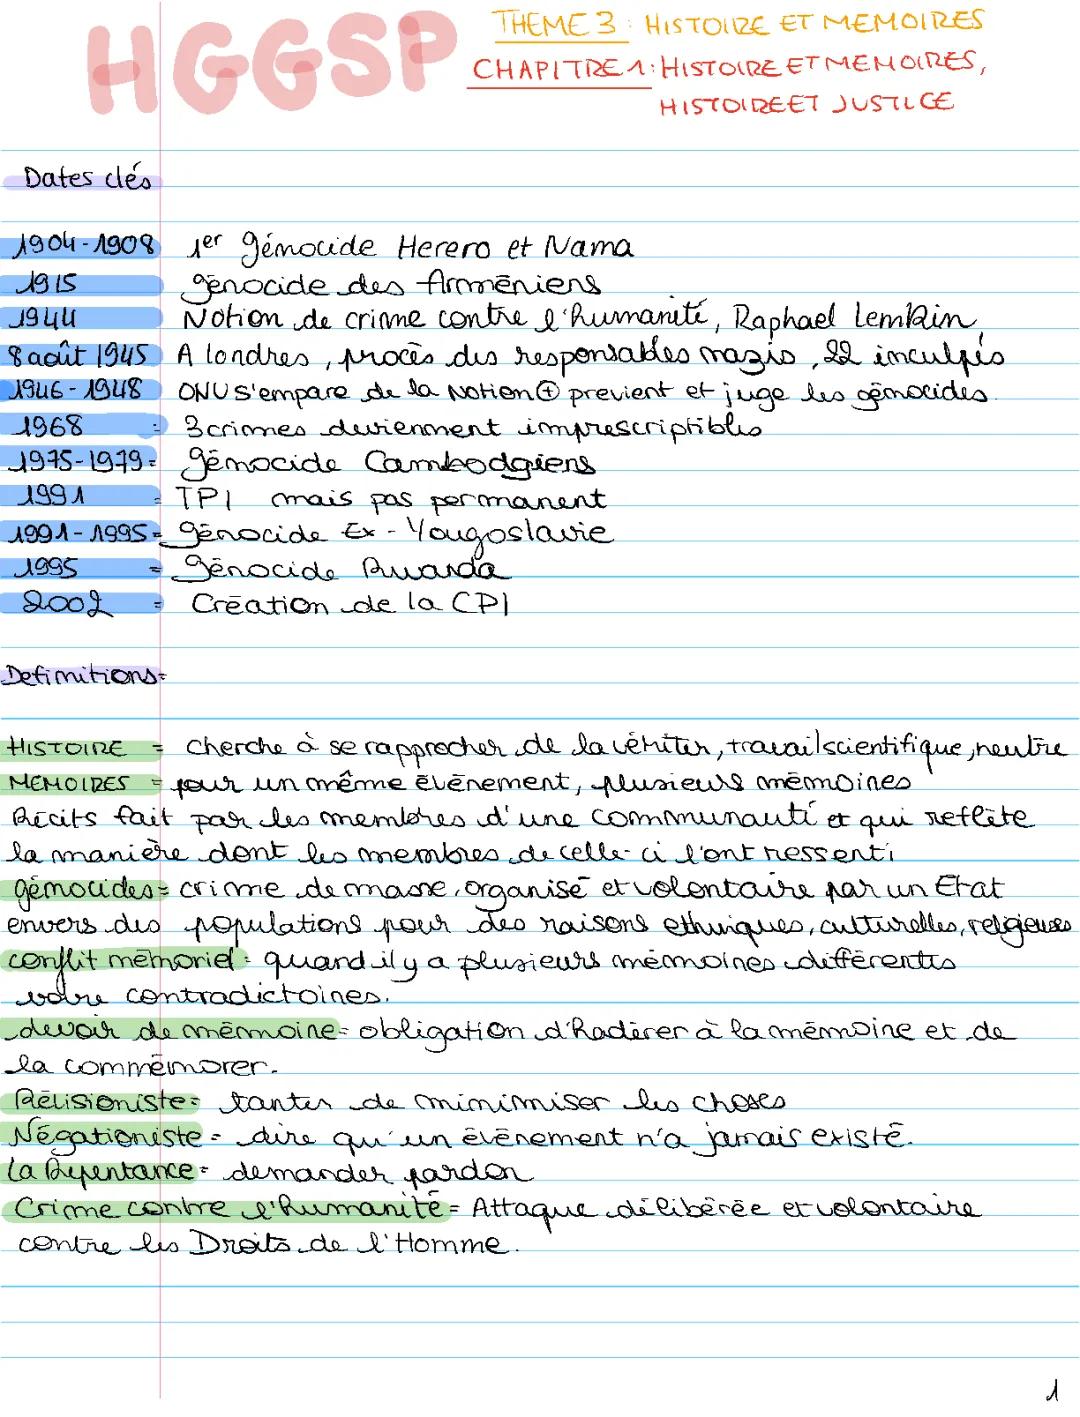 HGGSP
THEME 3 : HISTOIRE ET MEMOIRES
CHAPITRE 1 : HISTOIRE ET MEMOIRES,
HISTOIRE ET JUSTICE
Dates clés
1904-1908 1er génocide Herero et Nama
1915 génocide des Arméniens
1944 Notion de crime contre l'humanité, Raphael Lemkin
8 août 1945 A londres, procès des responsables nazis, 22 inculpés
1946-1948 ONU s'empare de la Notion ⊕ previent et juge les génocides.
1968 : 3 crimes deviennent imprescriptibles
1975-1979 = génocide Cambodgiens
1991 = TPI mais pas permanent
1991-1995 = génocide Ex-Yougoslavie
1995 = génocide Rwanda
2002 = Création de la CPI
Definitions =
HISTOIRE = cherche à se rapprocher de la vériter, travail scientifique, neutre
MEMOIRES = pour un même évènement, plusieurs mémoires
Récits fait par les membres d'une communauté et qui reflète
la manière dont les membres de celle-ci l'ont ressenti
génocides = crime de masse, organisé et volontaire par un Etat
envers des populations pour des raisons ethniques, culturelles, religieuses
conflit mémoriel = quand il y a plusieurs mémoires différentes
voire contradictoires.
devoir de mémoire = obligation d'hadérer à la mémoire et de
la commémorer.
Révisioniste = tanter de minimiser les choses
Négationiste = dire qu'un évènement n'a jamais existé.
la Repentance = demander pardon
Crime contre l'humanité = Attaque délibérée et volontaire
contre les Droits de l'Homme.
1